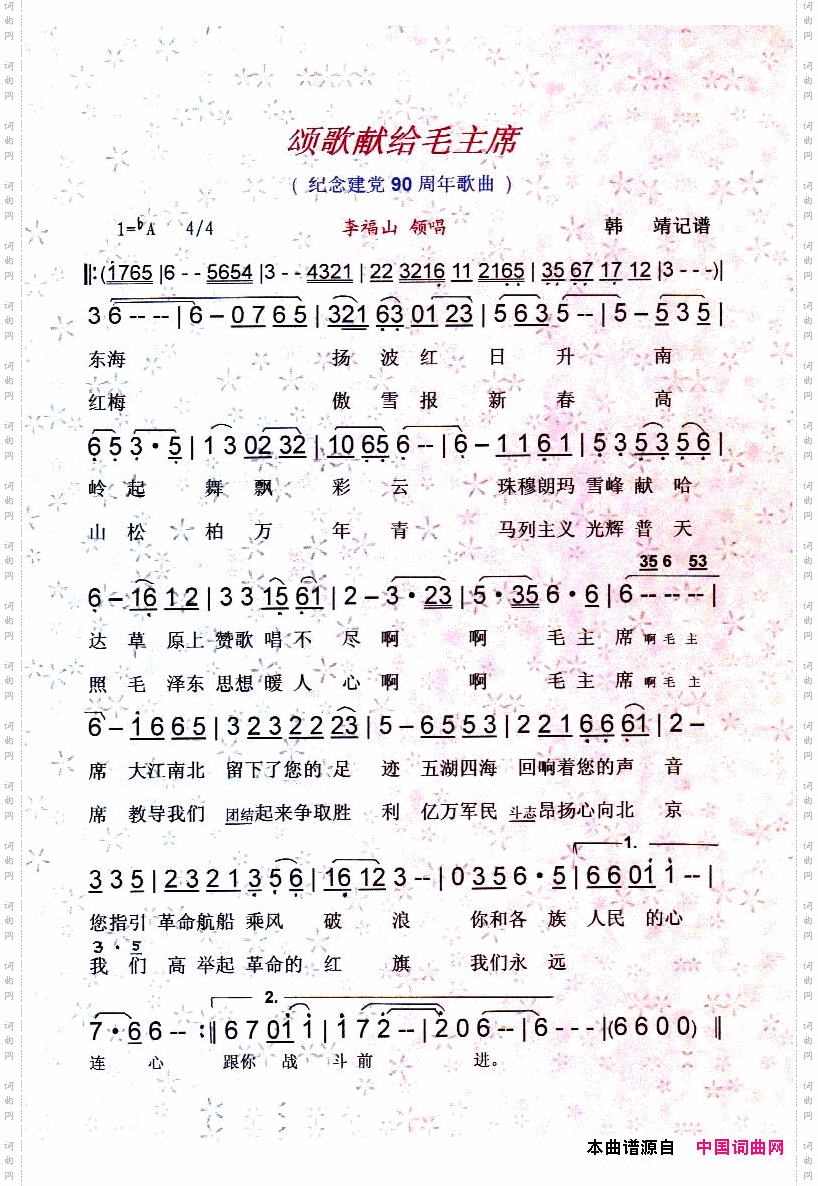 颂歌献给毛主席
( 纪念建党 90 周年歌曲 )
1=♭A 4/4 李福山 领唱 韩 靖记谱
‖:(1765 |6 - - 5654 |3 - - 4321 | 22 3216 11 2165 | 35 67 17 12 |3 - - -)|
3 6 -- -- | 6 – 0 7 6 5 | 321 63 01 23 | 5 6 3 5 -- | 5 – 5 3 5 |
东海 扬 波 红 日 升 南
红梅 傲 雪 报 新 春 高
6 5 3 · 5 | 1 3 02 32 | 10 65 6 -- | 6 – 1 1 6 1 | 5 3 5 3 5 6 |
岭 起 舞 飘 彩 云 珠穆朗玛 雪峰 献 哈
山 松 柏 万 年 青 马列主义 光辉 普 天
35 6 53
6 – 16 1 2 | 3 3 15 61 | 2 – 3 · 23 | 5 · 35 6 · 6 | 6 -- -- -- |
达 草 原上 赞歌 唱 不 尽 啊 啊 毛 主 席 啊 毛 主
照 毛 泽东 思想 暖 人 心 啊 啊 毛 主 席 啊 毛 主
6 – 1 6 6 5 | 3 2 3 2 2 23 | 5 – 6 5 5 3 | 2 2 1 6 6 61 | 2 –
席 大江南北 留下了您的 足 迹 五湖四海 回响着您的 声 音
席 教导我们 团结起来争取胜 利 亿万军民 斗志昂扬心向北 京
3 3 5 | 2 3 2 1 3 5 6 | 16 12 3 -- | 0 3 5 6 · 5 | 1. 6 6 01 1 -- |
您指引 革命航船 乘风 破 浪 你和各 族 人民 的心
3 · 5
我 们 高 举起 革命的 红 旗 我们永 远
2.
7 · 6 6 -- :‖ 6 7 01 1 | 1 7 2 -- | 2 0 6 -- | 6 - - - |(6 6 0 0) ‖
连 心 跟你 战 斗 前 进。
本曲谱源自 中国词曲网